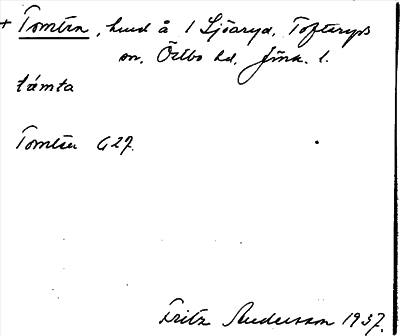 + Tomten, hmd å 1 Sjöaryd, Tofteryds
sn, Östbo hd, Jönk. l.
támta
Tomten G 27.
Fritz Andersson 1937.